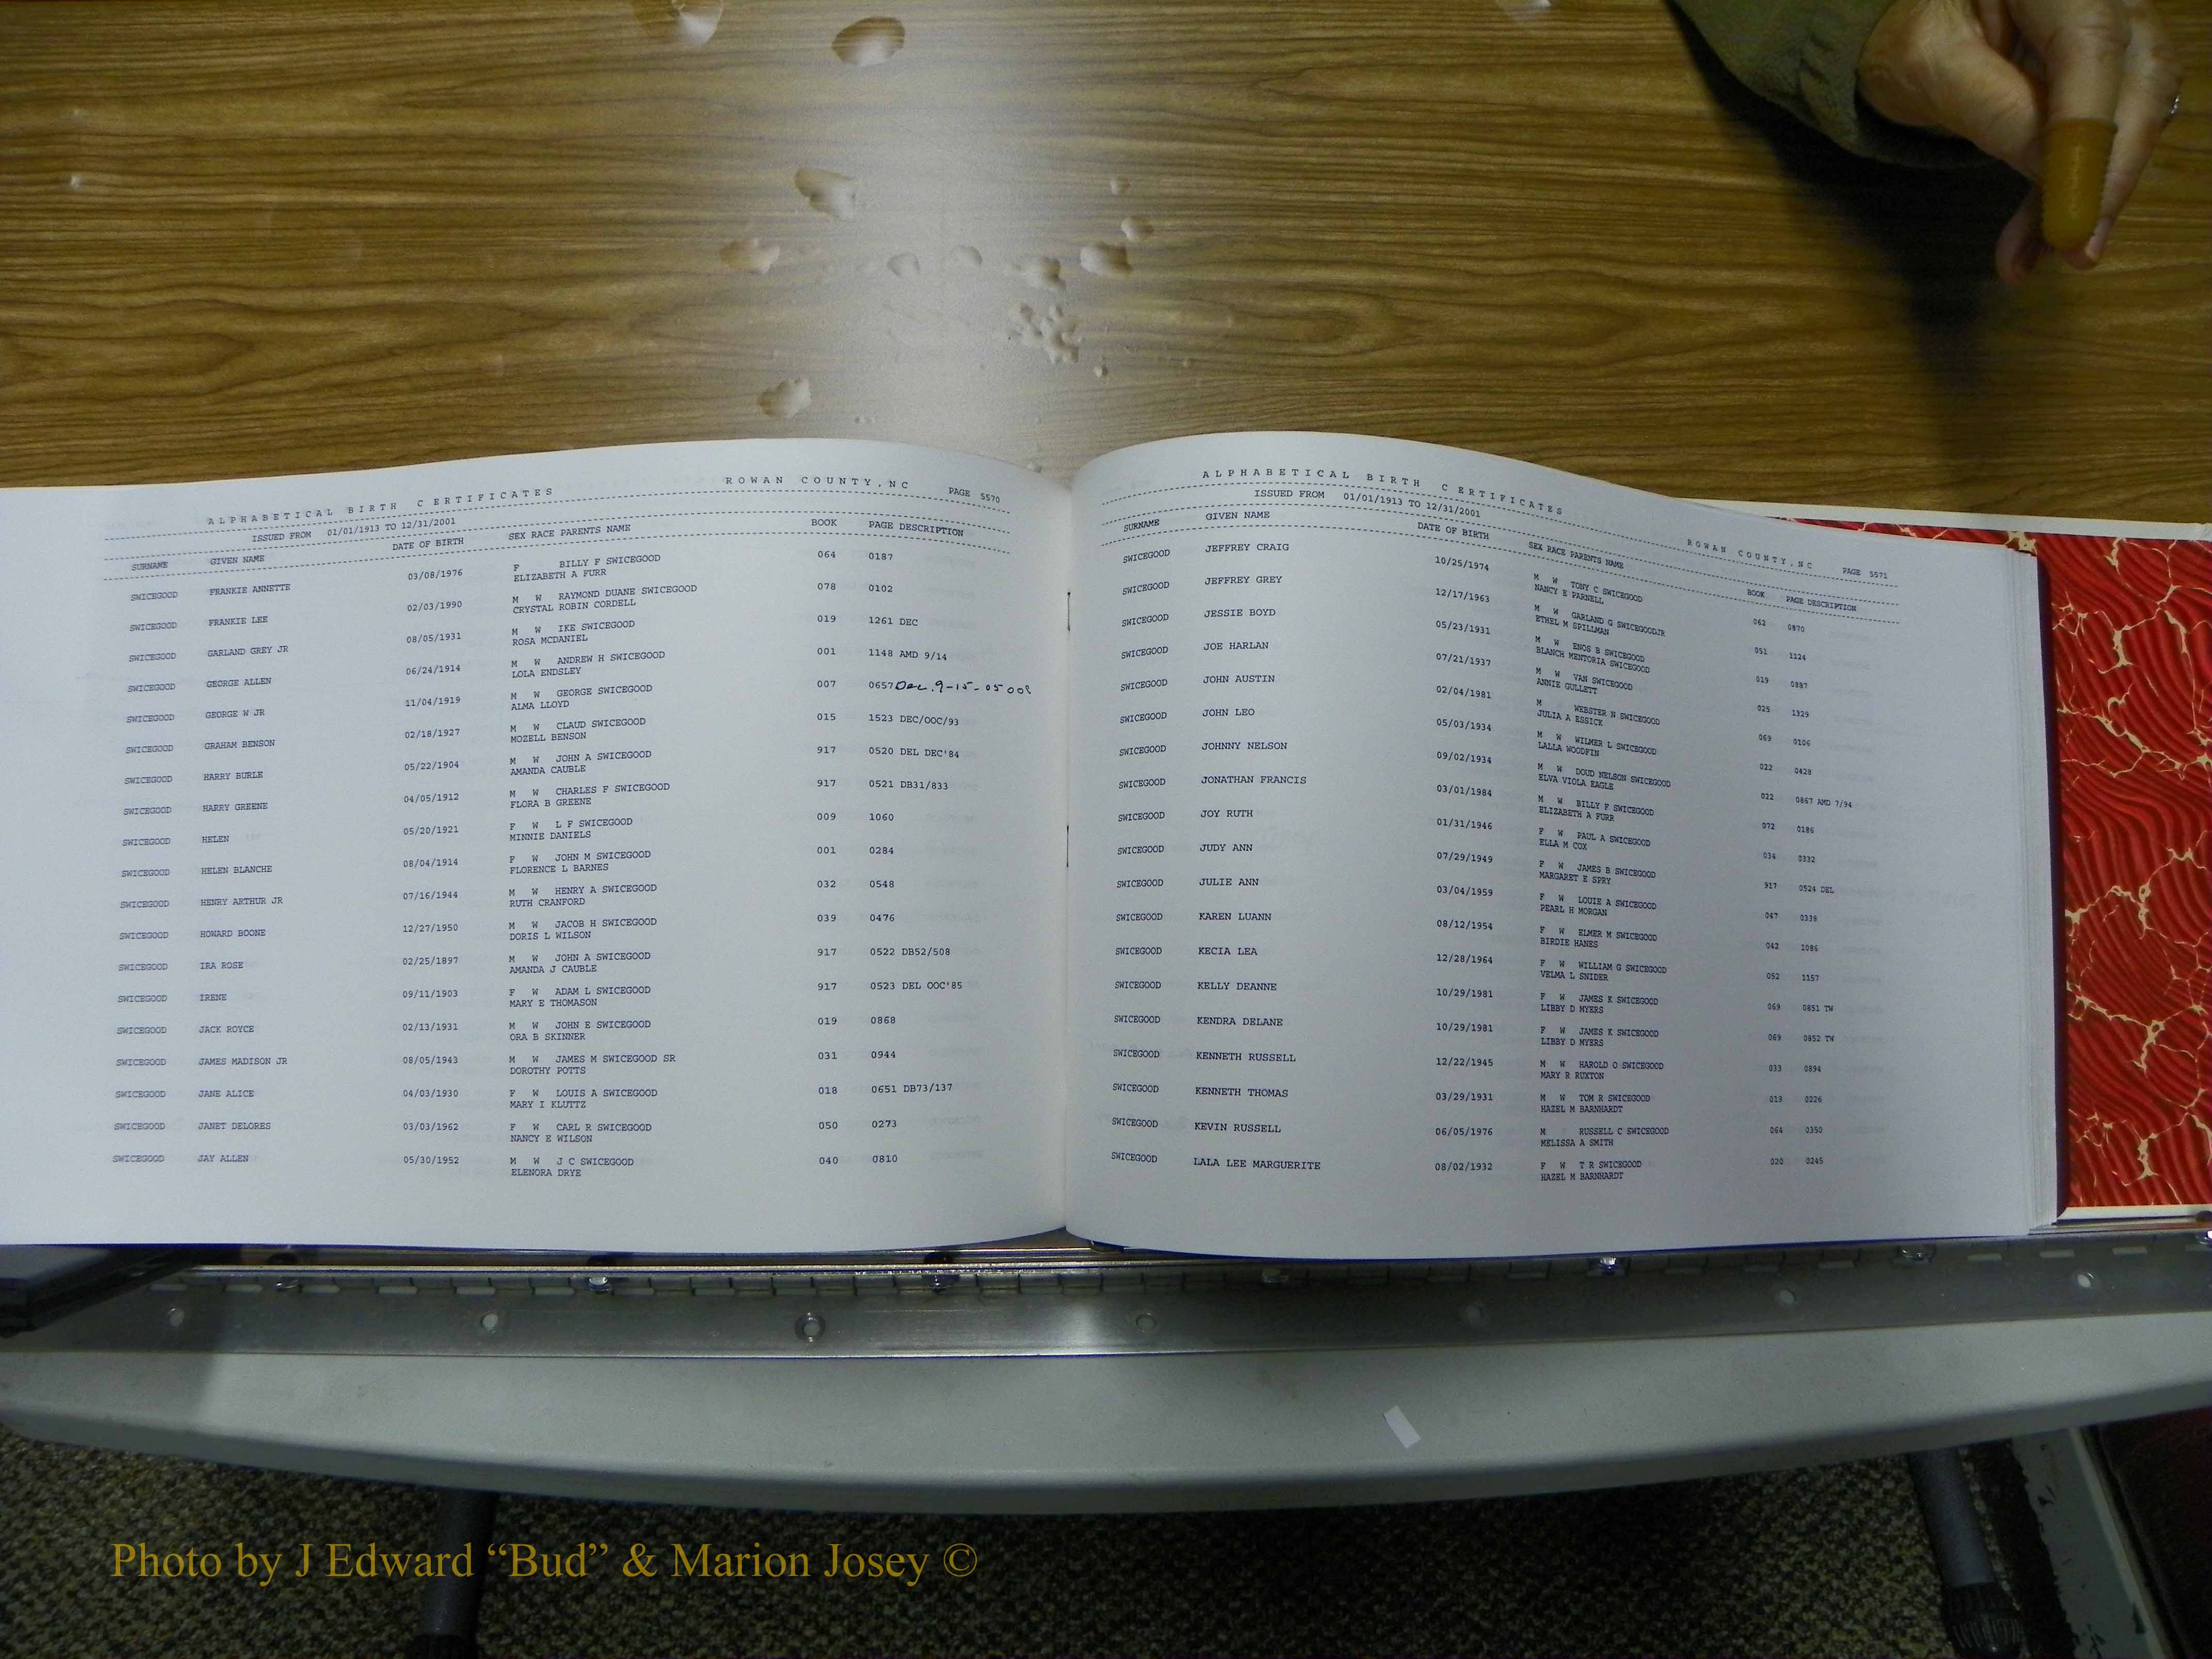 ALPHABETICAL BIRTH CERTIFICATES ROWAN COUNTY, NC PAGE 5570
ISSUED FROM 01/01/1913 TO 12/31/2001
SURNAME GIVEN NAME DATE OF BIRTH SEX RACE PARENTS NAME BOOK PAGE DESCRIPTION
SWICEGOOD FRANKIE ANNETTE 03/08/1976 F BILLY F SWICEGOOD 064 0187
ELIZABETH A FURR
SWICEGOOD FRANKIE LEE 02/03/1990 M W RAYMOND DUANE SWICEGOOD 078 0102
CRYSTAL ROBIN CORDELL
SWICEGOOD GARLAND GREY JR 08/05/1931 M W IKE SWICEGOOD 019 1261 DEC
ROSA MCDANIEL
SWICEGOOD GEORGE ALLEN 06/24/1914 M W ANDREW H SWICEGOOD 001 1148 AMD 9/14
LOLA ENDSLEY
SWICEGOOD GEORGE W JR 11/04/1919 M W GEORGE SWICEGOOD 007 0657 Dec. 9-15-05 008
ALMA LLOYD
SWICEGOOD GRAHAM BENSON 02/18/1927 M W CLAUD SWICEGOOD 015 1523 DEC/OOC/93
MOZELL BENSON
SWICEGOOD HARRY BURLE 05/22/1904 M W JOHN A SWICEGOOD 917 0520 DEL DEC'84
AMANDA CAUBLE
SWICEGOOD HARRY GREENE 04/05/1912 M W CHARLES F SWICEGOOD 917 0521 DB31/833
FLORA B GREENE
SWICEGOOD HELEN 05/20/1921 F W L F SWICEGOOD 009 1060
MINNIE DANIELS
SWICEGOOD HELEN BLANCHE 08/04/1914 F W JOHN M SWICEGOOD 001 0284
FLORENCE L BARNES
SWICEGOOD HENRY ARTHUR JR 07/16/1944 M W HENRY A SWICEGOOD 032 0548
RUTH CRANFORD
SWICEGOOD HOWARD BOONE 12/27/1950 M W JACOB H SWICEGOOD 039 0476
DORIS L WILSON
SWICEGOOD IRA ROSE 02/25/1897 M W JOHN A SWICEGOOD 917 0522 DB52/508
AMANDA J CAUBLE
SWICEGOOD IRENE 09/11/1903 F W ADAM L SWICEGOOD 917 0523 DEL OOC'85
MARY E THOMASON
SWICEGOOD JACK ROYCE 02/13/1931 M W JOHN E SWICEGOOD 019 0868
ORA B SKINNER
SWICEGOOD JAMES MADISON JR 08/05/1943 M W JAMES M SWICEGOOD SR 031 0944
DOROTHY POTTS
SWICEGOOD JANE ALICE 04/03/1930 F W LOUIS A SWICEGOOD 018 0651 DB73/137
MARY I KLUTTZ
SWICEGOOD JANET DELORES 03/03/1962 F W CARL R SWICEGOOD 050 0273
NANCY E WILSON
SWICEGOOD JAY ALLEN 05/30/1952 M W J C SWICEGOOD 040 0810
ELENORA DRYE
ALPHABETICAL BIRTH CERTIFICATES ROWAN COUNTY, NC PAGE 5571
ISSUED FROM 01/01/1913 TO 12/31/2001
SURNAME GIVEN NAME DATE OF BIRTH SEX RACE PARENTS NAME BOOK PAGE DESCRIPTION
SWICEGOOD JEFFREY CRAIG 10/25/1974 M W TONY C SWICEGOOD 062 0870
NANCY E PARNELL
SWICEGOOD JEFFREY GREY 12/17/1963 M W GARLAND G SWICEGOODJR 051 1124
ETHEL M SPILLMAN
SWICEGOOD JESSIE BOYD 05/23/1931 M W ENOS B SWICEGOOD 019 0887
BLANCH MENTORIA SWICEGOOD
SWICEGOOD JOE HARLAN 07/21/1937 M W VAN SWICEGOOD 025 1329
ANNIE GULLETT
SWICEGOOD JOHN AUSTIN 02/04/1981 M WEBSTER N SWICEGOOD 069 0106
JULIA A ESSICK
SWICEGOOD JOHN LEO 05/03/1934 M W WILMER L SWICEGOOD 022 0428
LALLA WOODFIN
SWICEGOOD JOHNNY NELSON 09/02/1934 M W DOUD NELSON SWICEGOOD 022 0867 AMD 7/94
ELVA VIOLA EAGLE
SWICEGOOD JONATHAN FRANCIS 03/01/1984 M W BILLY F SWICEGOOD 072 0186
ELIZABETH A FURR
SWICEGOOD JOY RUTH 01/31/1946 F W PAUL A SWICEGOOD 034 0332
ELLA M COX
SWICEGOOD JUDY ANN 07/29/1949 F W JAMES B SWICEGOOD 917 0524 DEL
MARGARET E SPRY
SWICEGOOD JULIE ANN 03/04/1959 F W LOUIE A SWICEGOOD 047 0338
PEARL H MORGAN
SWICEGOOD KAREN LUANN 08/12/1954 F W ELMER M SWICEGOOD 042 1086
BIRDIE HANES
SWICEGOOD KECIA LEA 12/28/1964 F W WILLIAM G SWICEGOOD 052 1157
VELMA L SNIDER
SWICEGOOD KELLY DEANNE 10/29/1981 F W JAMES K SWICEGOOD 069 0851 TW
LIBBY D MYERS
SWICEGOOD KENDRA DELANE 10/29/1981 F W JAMES K SWICEGOOD 069 0852 TW
LIBBY D MYERS
SWICEGOOD KENNETH RUSSELL 12/22/1945 M W HAROLD O SWICEGOOD 033 0894
MARY R RUXTON
SWICEGOOD KENNETH THOMAS 03/29/1931 M W TOM R SWICEGOOD 019 0226
HAZEL M BARNHARDT
SWICEGOOD KEVIN RUSSELL 06/05/1976 M RUSSELL C SWICEGOOD 064 0350
MELISSA A SMITH
SWICEGOOD LALA LEE MARGUERITE 08/02/1932 F W T R SWICEGOOD 020 0245
HAZEL M BARNHARDT
Photo by J Edward “Bud” & Marion Josey ©